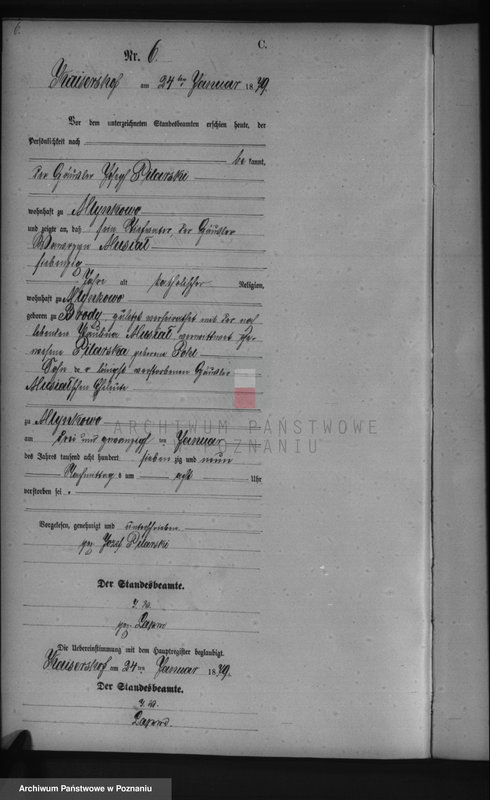 6.
C.
Nr. 6.
Kaisershof am 24ten Januar 1879.
Vor dem unterzeichneten Standesbeamten erschien heute, der
Persönlichkeit nach
be kannt,
der Häusler Joseph Pilarski
wohnhaft zu Mlynkowo
und zeigte an, daß sein Stiefvater, der Häusler
Musiał
siebenzig
Jahre alt katholischer Religion,
wohnhaft zu Mlynkowo
geboren zu Brody, zuletzt verheirathet mit der noch
lebenden Paulina Musiał verwittwet ge-
wesene Pilarska geborene Pohl
Sohn der längst verstorbenen Häusler
Musiałschen Eheleute
zu Mlynkowo
am drei und zwanzigsten Januar
des Jahres tausend acht hundert sieben zig und neun
Nachmittags um acht Uhr
verstorben sei.
Vorgelesen, genehmigt und unterschrieben
gez. Jozef Pilarski
Der Standesbeamte.
gez.
Die Uebereinstimmung mit dem Hauptregister beglaubigt.
Kaisershof am 24ten Januar 1879.
Der Standesbeamte.
ARCHIWUM PAŃSTWOWE
W POZNANIU
Archiwum Państwowe w Poznaniu